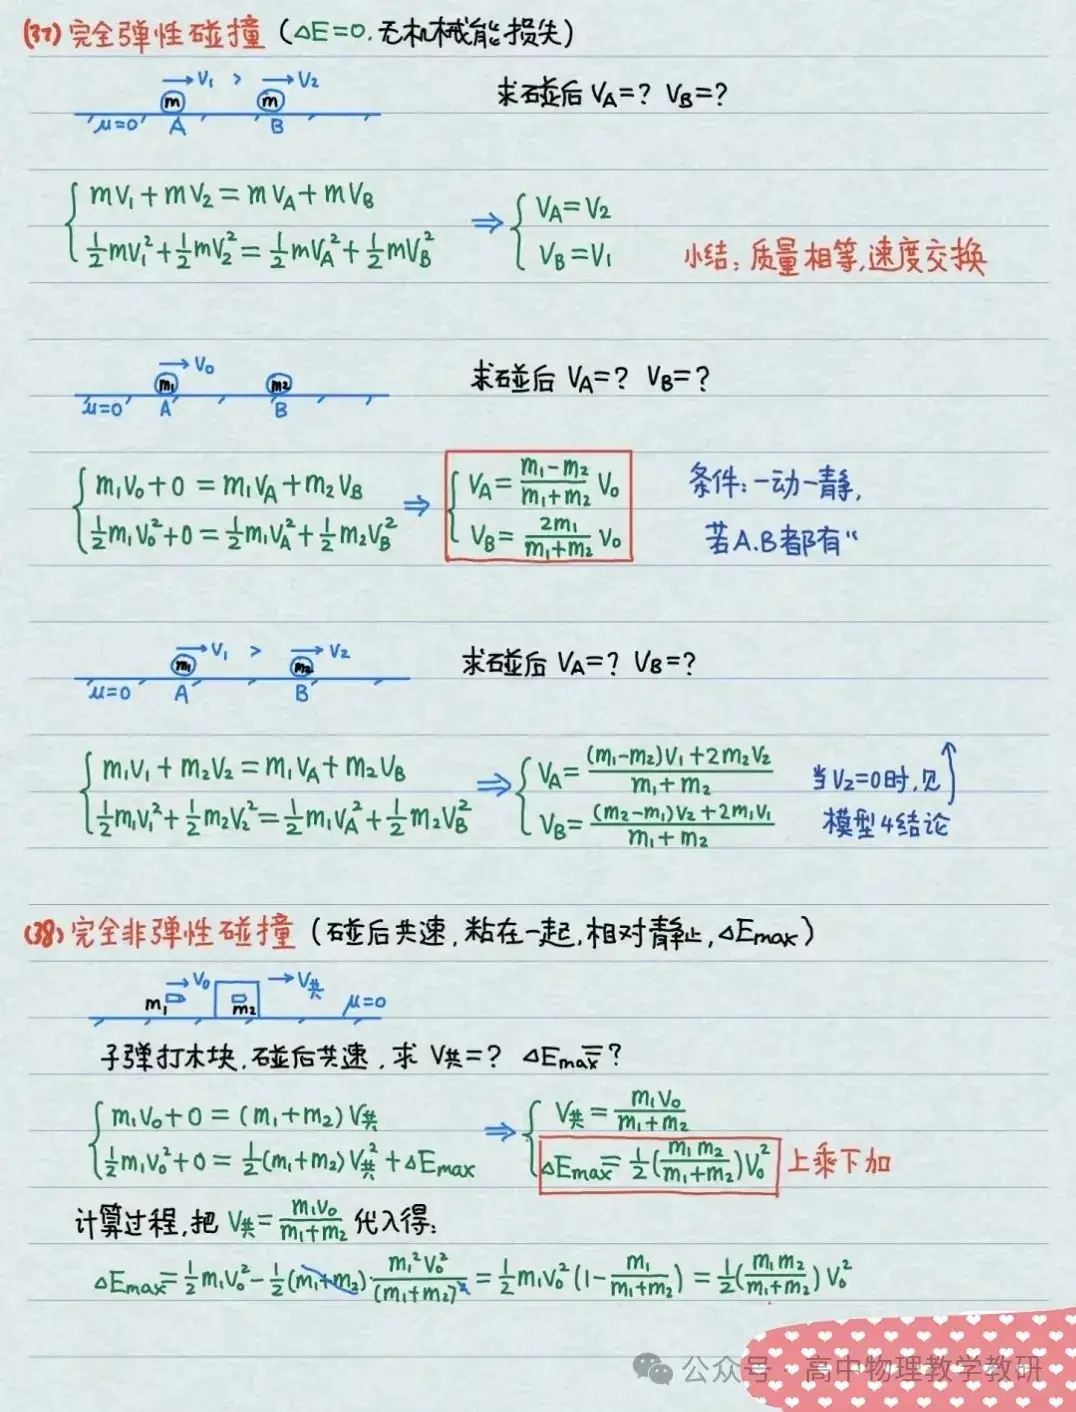 (37) 完全弹性碰撞 (△E=0.无机械能损失)
V₁ > V₂
m m
μ=0 A B
求碰后 VA=? VB=?
{ mV₁+mV₂=mVA+mVB
½mV₁²+½mV₂²=½mVA²+½mVB²
⇒ { VA=V₂
VB=V₁
小结:质量相等,速度交换
V₀
m₁ m₂
μ=0 A B
求碰后 VA=? VB=?
{ m₁V₀+0=m₁VA+m₂VB
½m₁V₀²+0=½m₁VA²+½m₂VB²
⇒ { VA=(m₁-m₂)/(m₁+m₂) V₀
VB=2m₁/(m₁+m₂) V₀
条件:一动一静,
若A.B都有“
V₁ > V₂
m₁ m₂
μ=0 A B
求碰后 VA=? VB=?
{ m₁V₁+m₂V₂=m₁VA+m₂VB
½m₁V₁²+½m₂V₂²=½m₁VA²+½m₂VB²
⇒ { VA=((m₁-m₂)V₁+2m₂V₂)/(m₁+m₂)
VB=((m₂-m₁)V₂+2m₁V₁)/(m₁+m₂)
当V₂=0时,见
模型4结论
(38) 完全非弹性碰撞 (碰后共速,粘在一起,相对静止,△Emax)
V₀ V共
m₁ m₂ μ=0
子弹打木块,碰后共速,求 V共=? △Emax=?
{ m₁V₀+0=(m₁+m₂)V共
½m₁V₀²+0=½(m₁+m₂)V共²+△Emax
⇒ { V共=m₁V₀/(m₁+m₂)
△Emax=½(m₁m₂/(m₁+m₂))V₀²
上乘下加
计算过程,把 V共=m₁V₀/(m₁+m₂) 代入得:
△Emax=½m₁V₀²-½(m₁+m₂)·m₁²V₀²/(m₁+m₂)²=½m₁V₀²(1-m₁/(m₁+m₂))=½(m₁m₂/(m₁+m₂))V₀²
公众号 高中物理教学教研